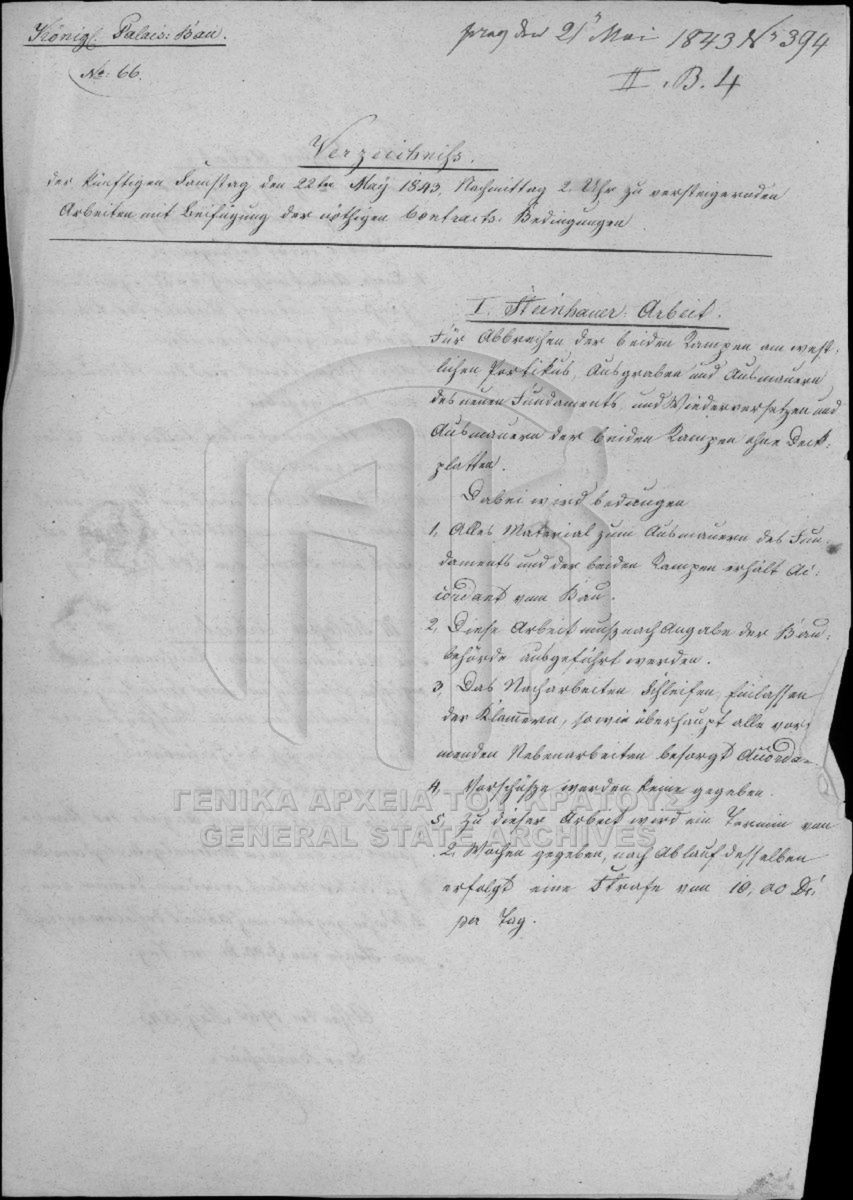 Königl. Palais-Bau.
No: 66.
praes den 21n Mai 1843 No 394
II. B. 4
Verzeichniss.
der künftigen Samstag den 22ten May 1843, Nachmittag 2 Uhr zu versteigernden
Arbeiten mit Beifügung der nöthigen Contracts-Bedingungen.
I. Steinhauer-Arbeit.
Für Abbrechen der beiden Rampen am west-
lichen Portikus, Ausgraben und Ausmauern
des neuen Fundaments, und Wiederversetzen und
Ausmauern der beiden Rampen ohne Deck-
platten.
Dabei wird bedungen
1, Alles Material zum Ausmauern des Fun-
daments und der beiden Rampen erhält Ac-
cordant vom Bau.
2, Diese Arbeit muß nach Angabe der Bau-
behörde ausgeführt werden.
3, Das Nacharbeiten, Schleifen, Einlassen
der Klamern, so wie überhaupt alle vor-
menden Nebenarbeiten besorgt Accorda-
4, Vorschüße werden keine gegeben.
5, Zu dieser Arbeit wird ein Termin von
2, Wochen gegeben, nach Ablauf desselben
erfolgt eine Strafe von 10,00 Dr
per Tag.
ΓΕΝΙΚΑ ΑΡΧΕΙΑ ΤΟΥ ΚΡΑΤΟΥΣ
GENERAL STATE ARCHIVES